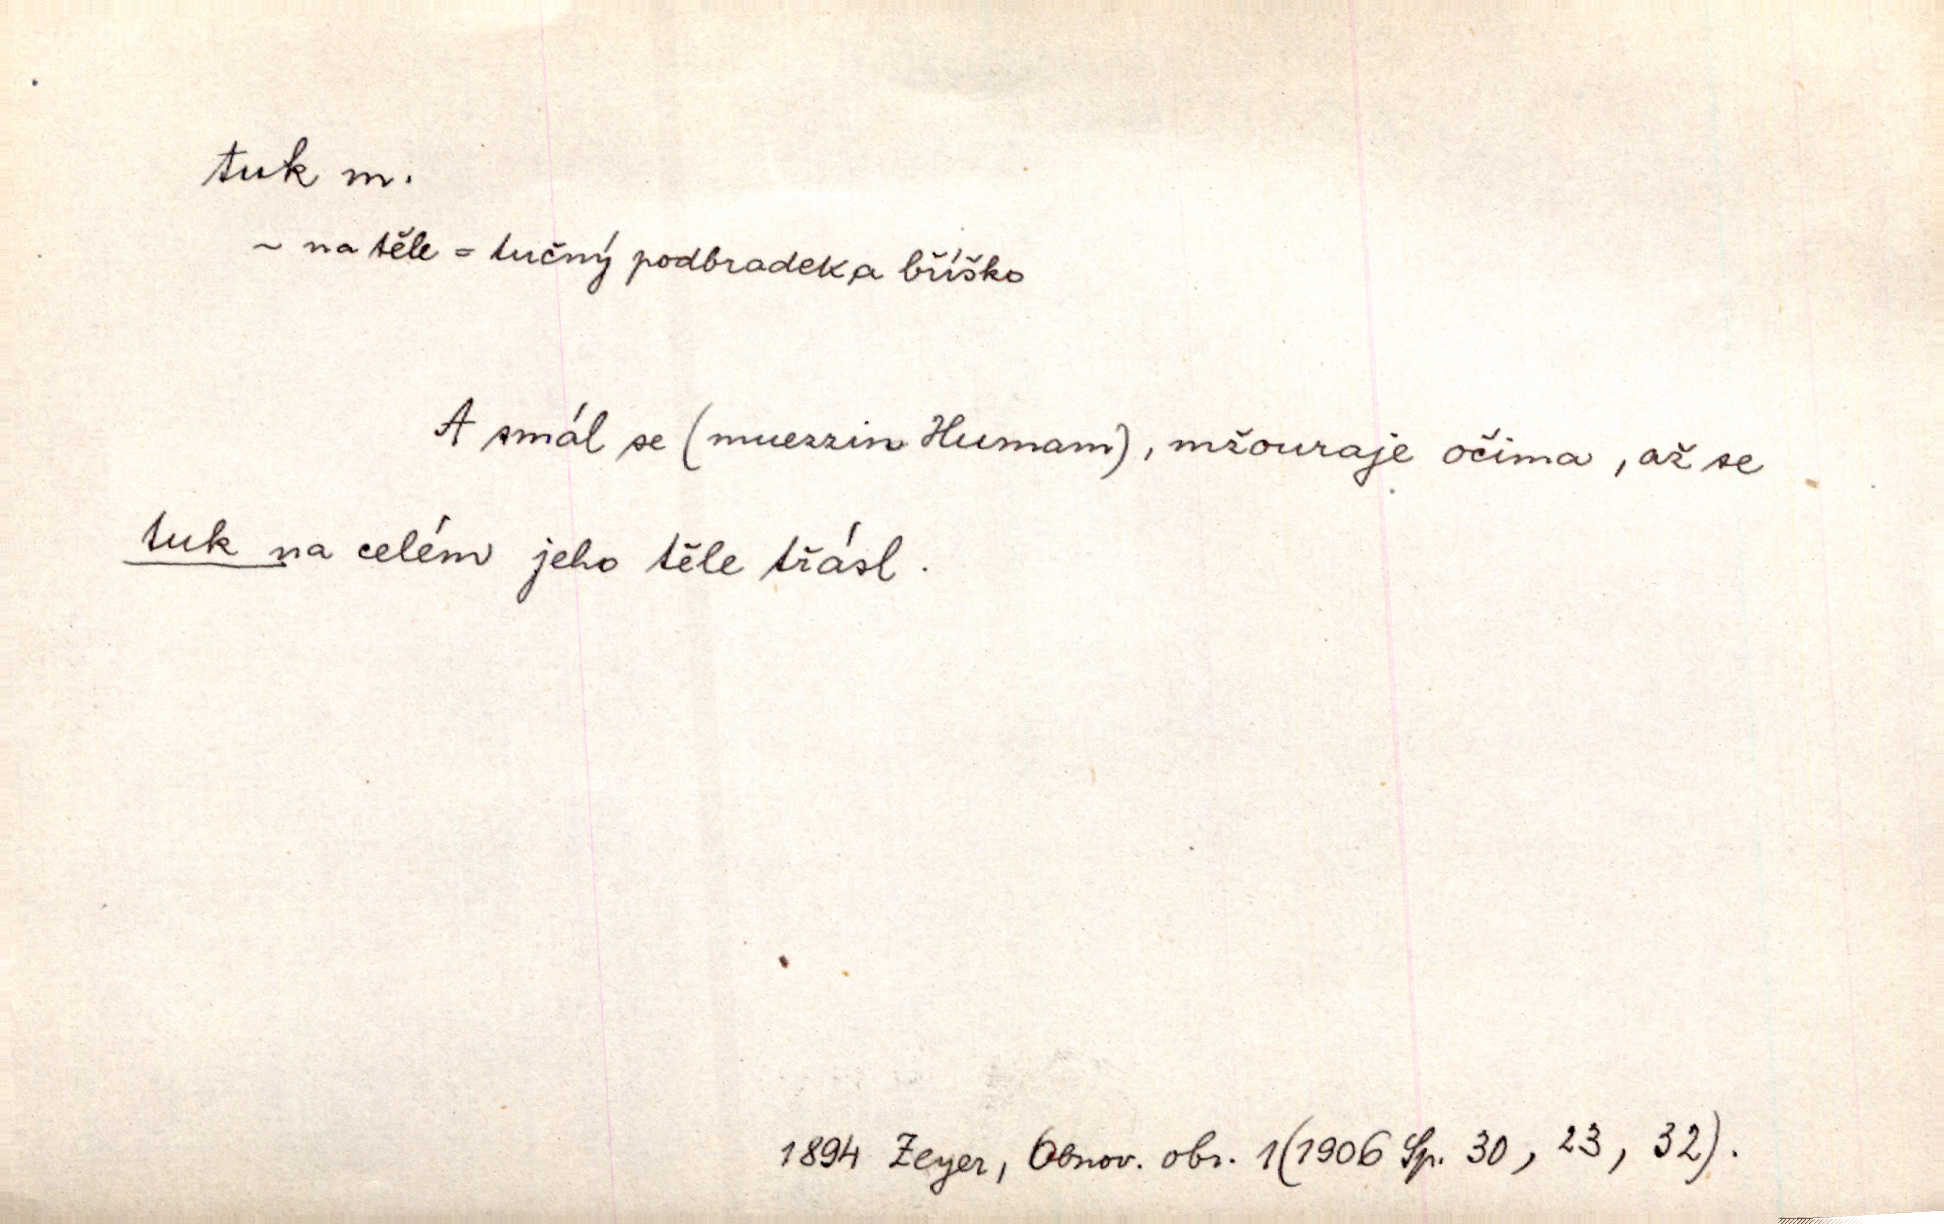 tuk m.
~ na těle = tučný podbradek a bříško
A smál se (muezzin Humam), mžouraje očima, až se
tuk na celém jeho těle třásl.
1894 Zeyer, Obnov. obr. 1(1906 Sp. 30, 23, 32).